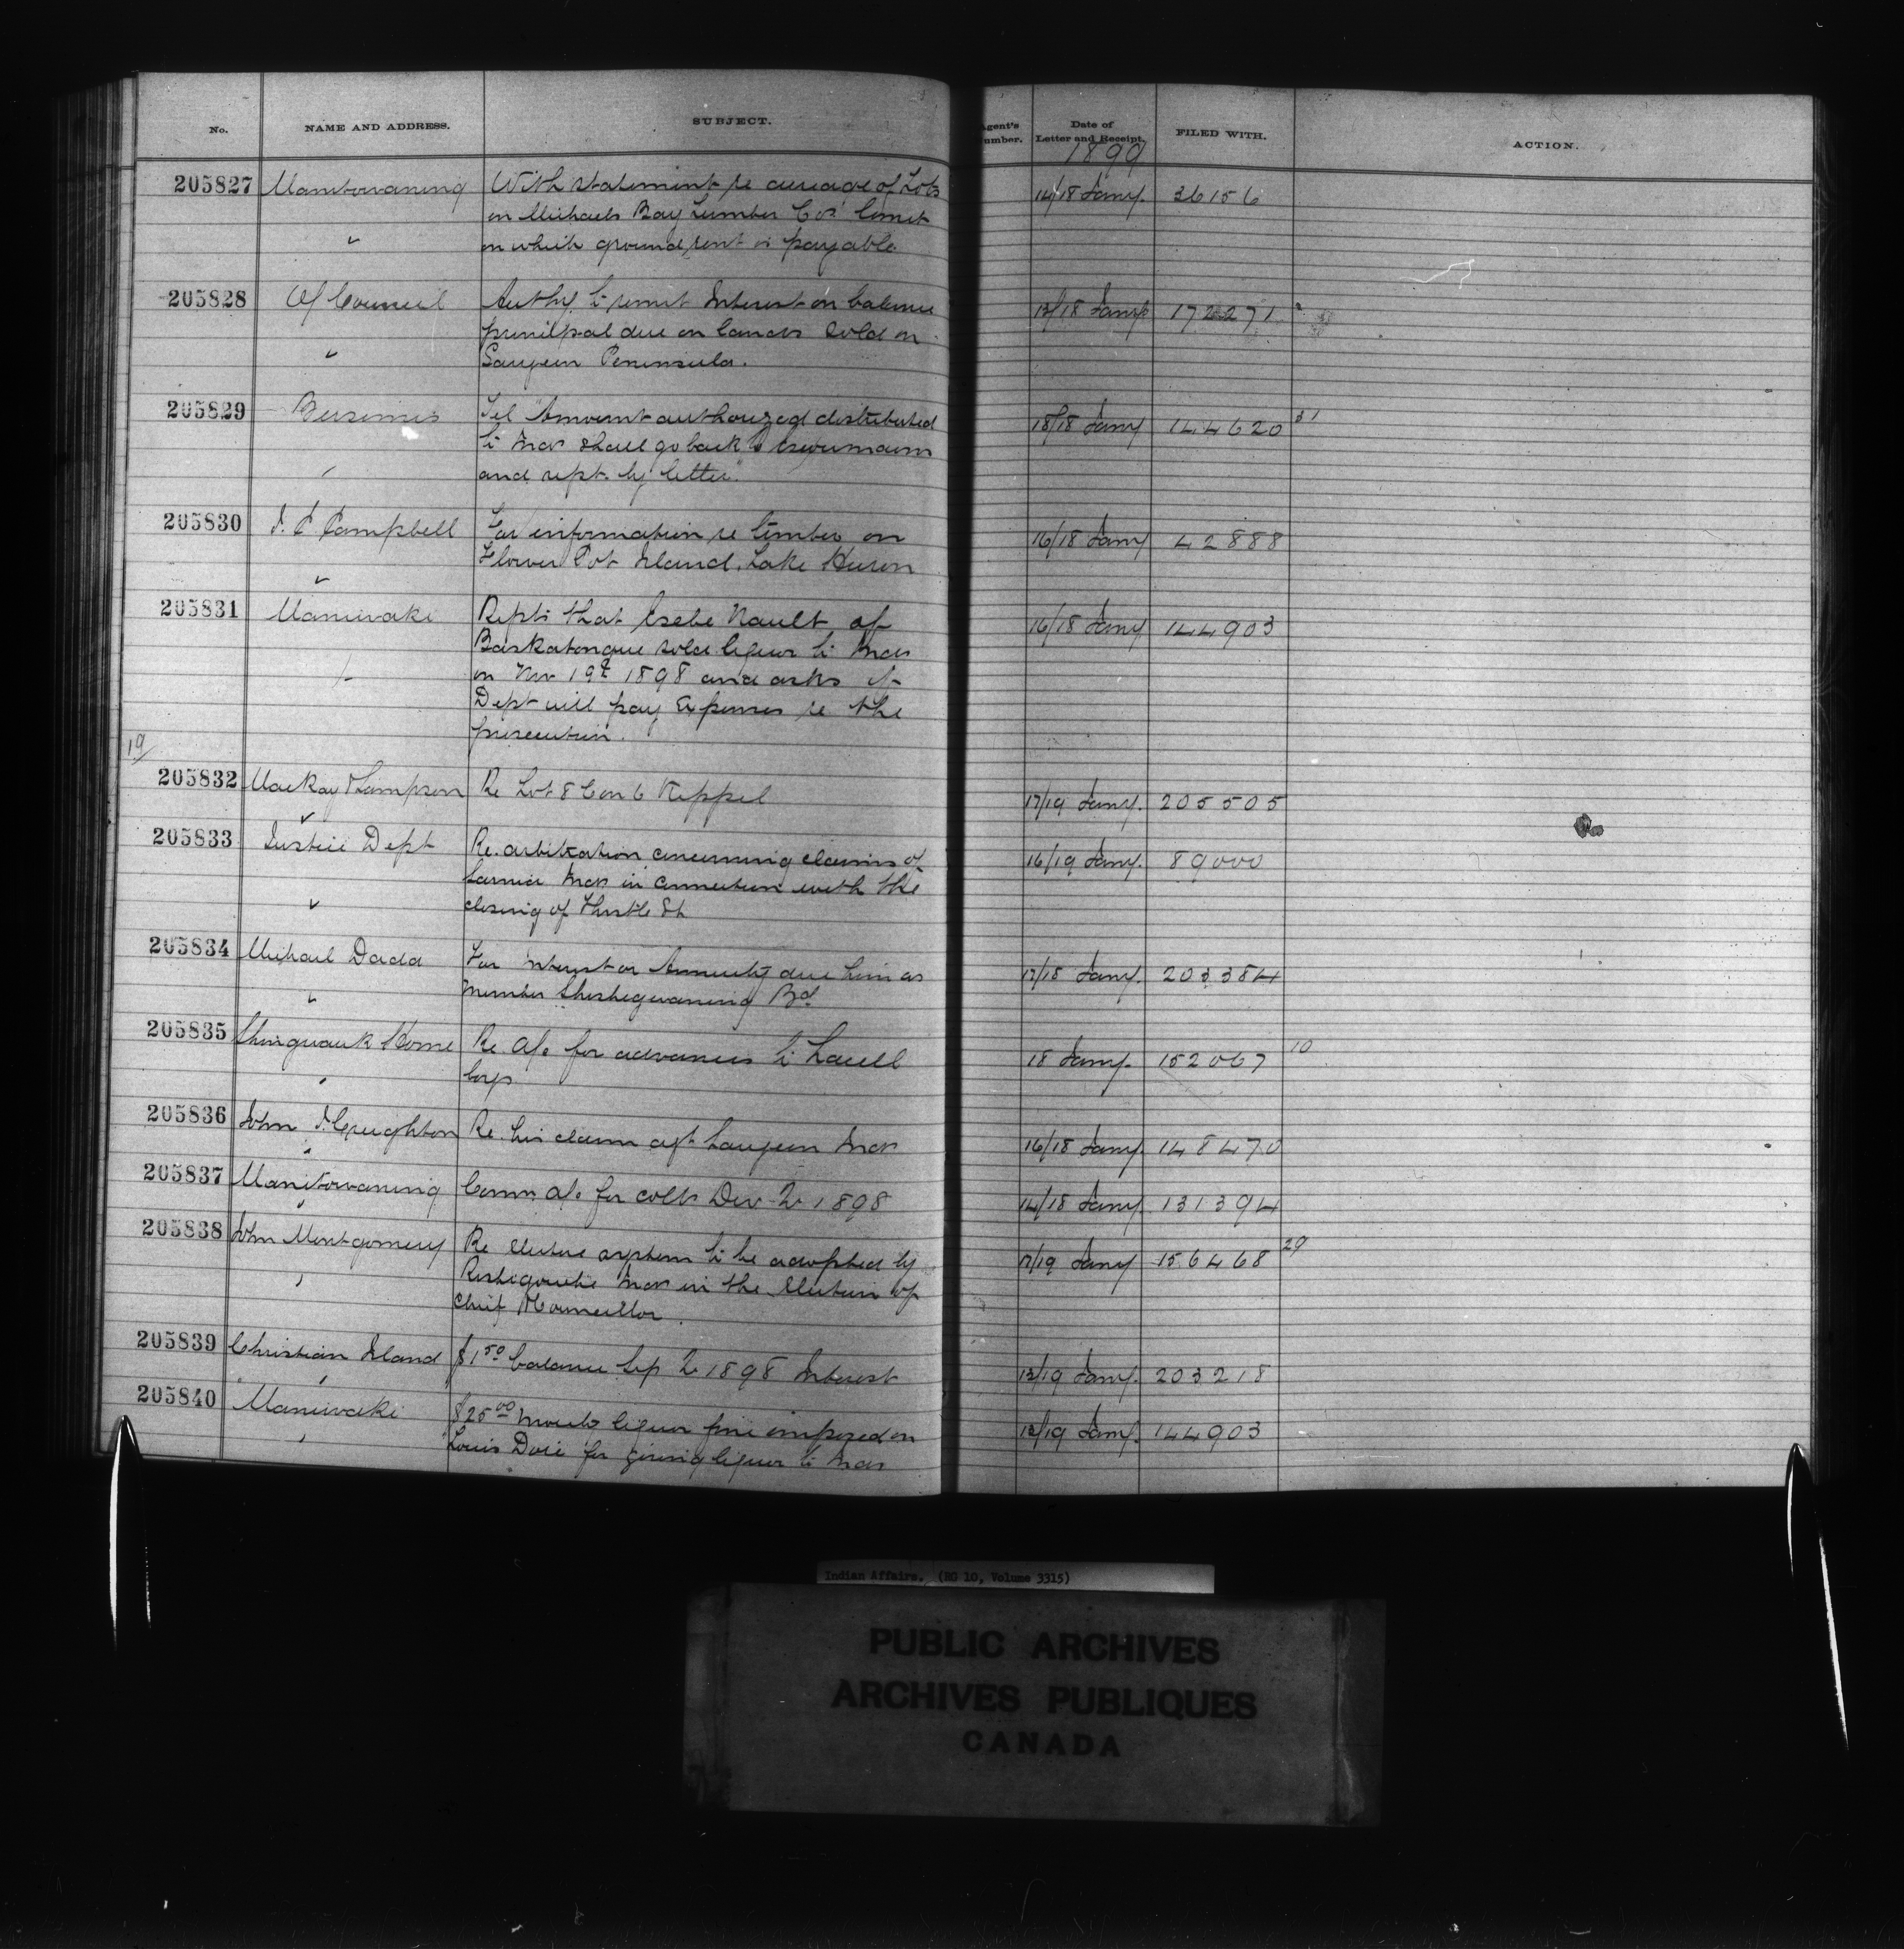 No. NAME AND ADDRESS. SUBJECT. Agent's Number. Date of Letter and Receipt. FILED WITH. ACTION.
1899
205827 Manitowaning With statement re acreage of Lots 14/18 Jany. 36156
on Michaels Bay Lumber Co's limit
on which ground rent is payable
205828 O/ Council Authy. to remit Interest on balance 13/18 Jany 172271
principal due on lands sold on
Saugeen Peninsula.
205829 Bersimis Tel "Amount authorized distributed 18/18 Jany 144620 31
to Inds shall go back to
and rept. by letter."
205830 Campbell For information re timber on 16/18 Jany 42888
Flower Pot Island, Lake Huron
205831 Maniwaki Repts that Nault of 16/18 Jany 144903
Baskatongue sold liquor to Inds
on Nov 19th 1898 and asks if
Dept will pay expenses re the
prosecution.
19/
205832 Mackay & Sampson Re Lot 8 Con 6 Keppel 17/19 Jany. 205505
205833 Justice Dept Re. arbitration concerning claims of 16/19 Jany. 89000
Sarnia Inds in connection with the
closing of St
205834 Michael Dada For Interest or Annuity due him as 17/18 Jany. 203384
member Sheshegwaning Bd
205835 Shingwauk Home Re a/c for advances to 18 Jany. 152067 10
boys
205836 John Creighton Re his claim agt Saugeen Inds 16/18 Jany. 148470
205837 Manitowaning Comn a/c for colls Dec Qr 1898 14/18 Jany. 131394
205838 John Montgomery Re elective system to be adopted by 17/19 Jany 156468 29
Restigouche Inds in the election of
Chief & Councillor.
205839 Christian Island $1.50 balance Sep Qr 1898 Interest 13/19 Jany. 203218
205840 Maniwaki $25.00 liquor fine imposed on 18/19 Jany. 144903
Louis Doré for giving liquor to Inds
Indian Affairs. (RG 10, Volume 3315)
PUBLIC ARCHIVES
ARCHIVES PUBLIQUES
CANADA